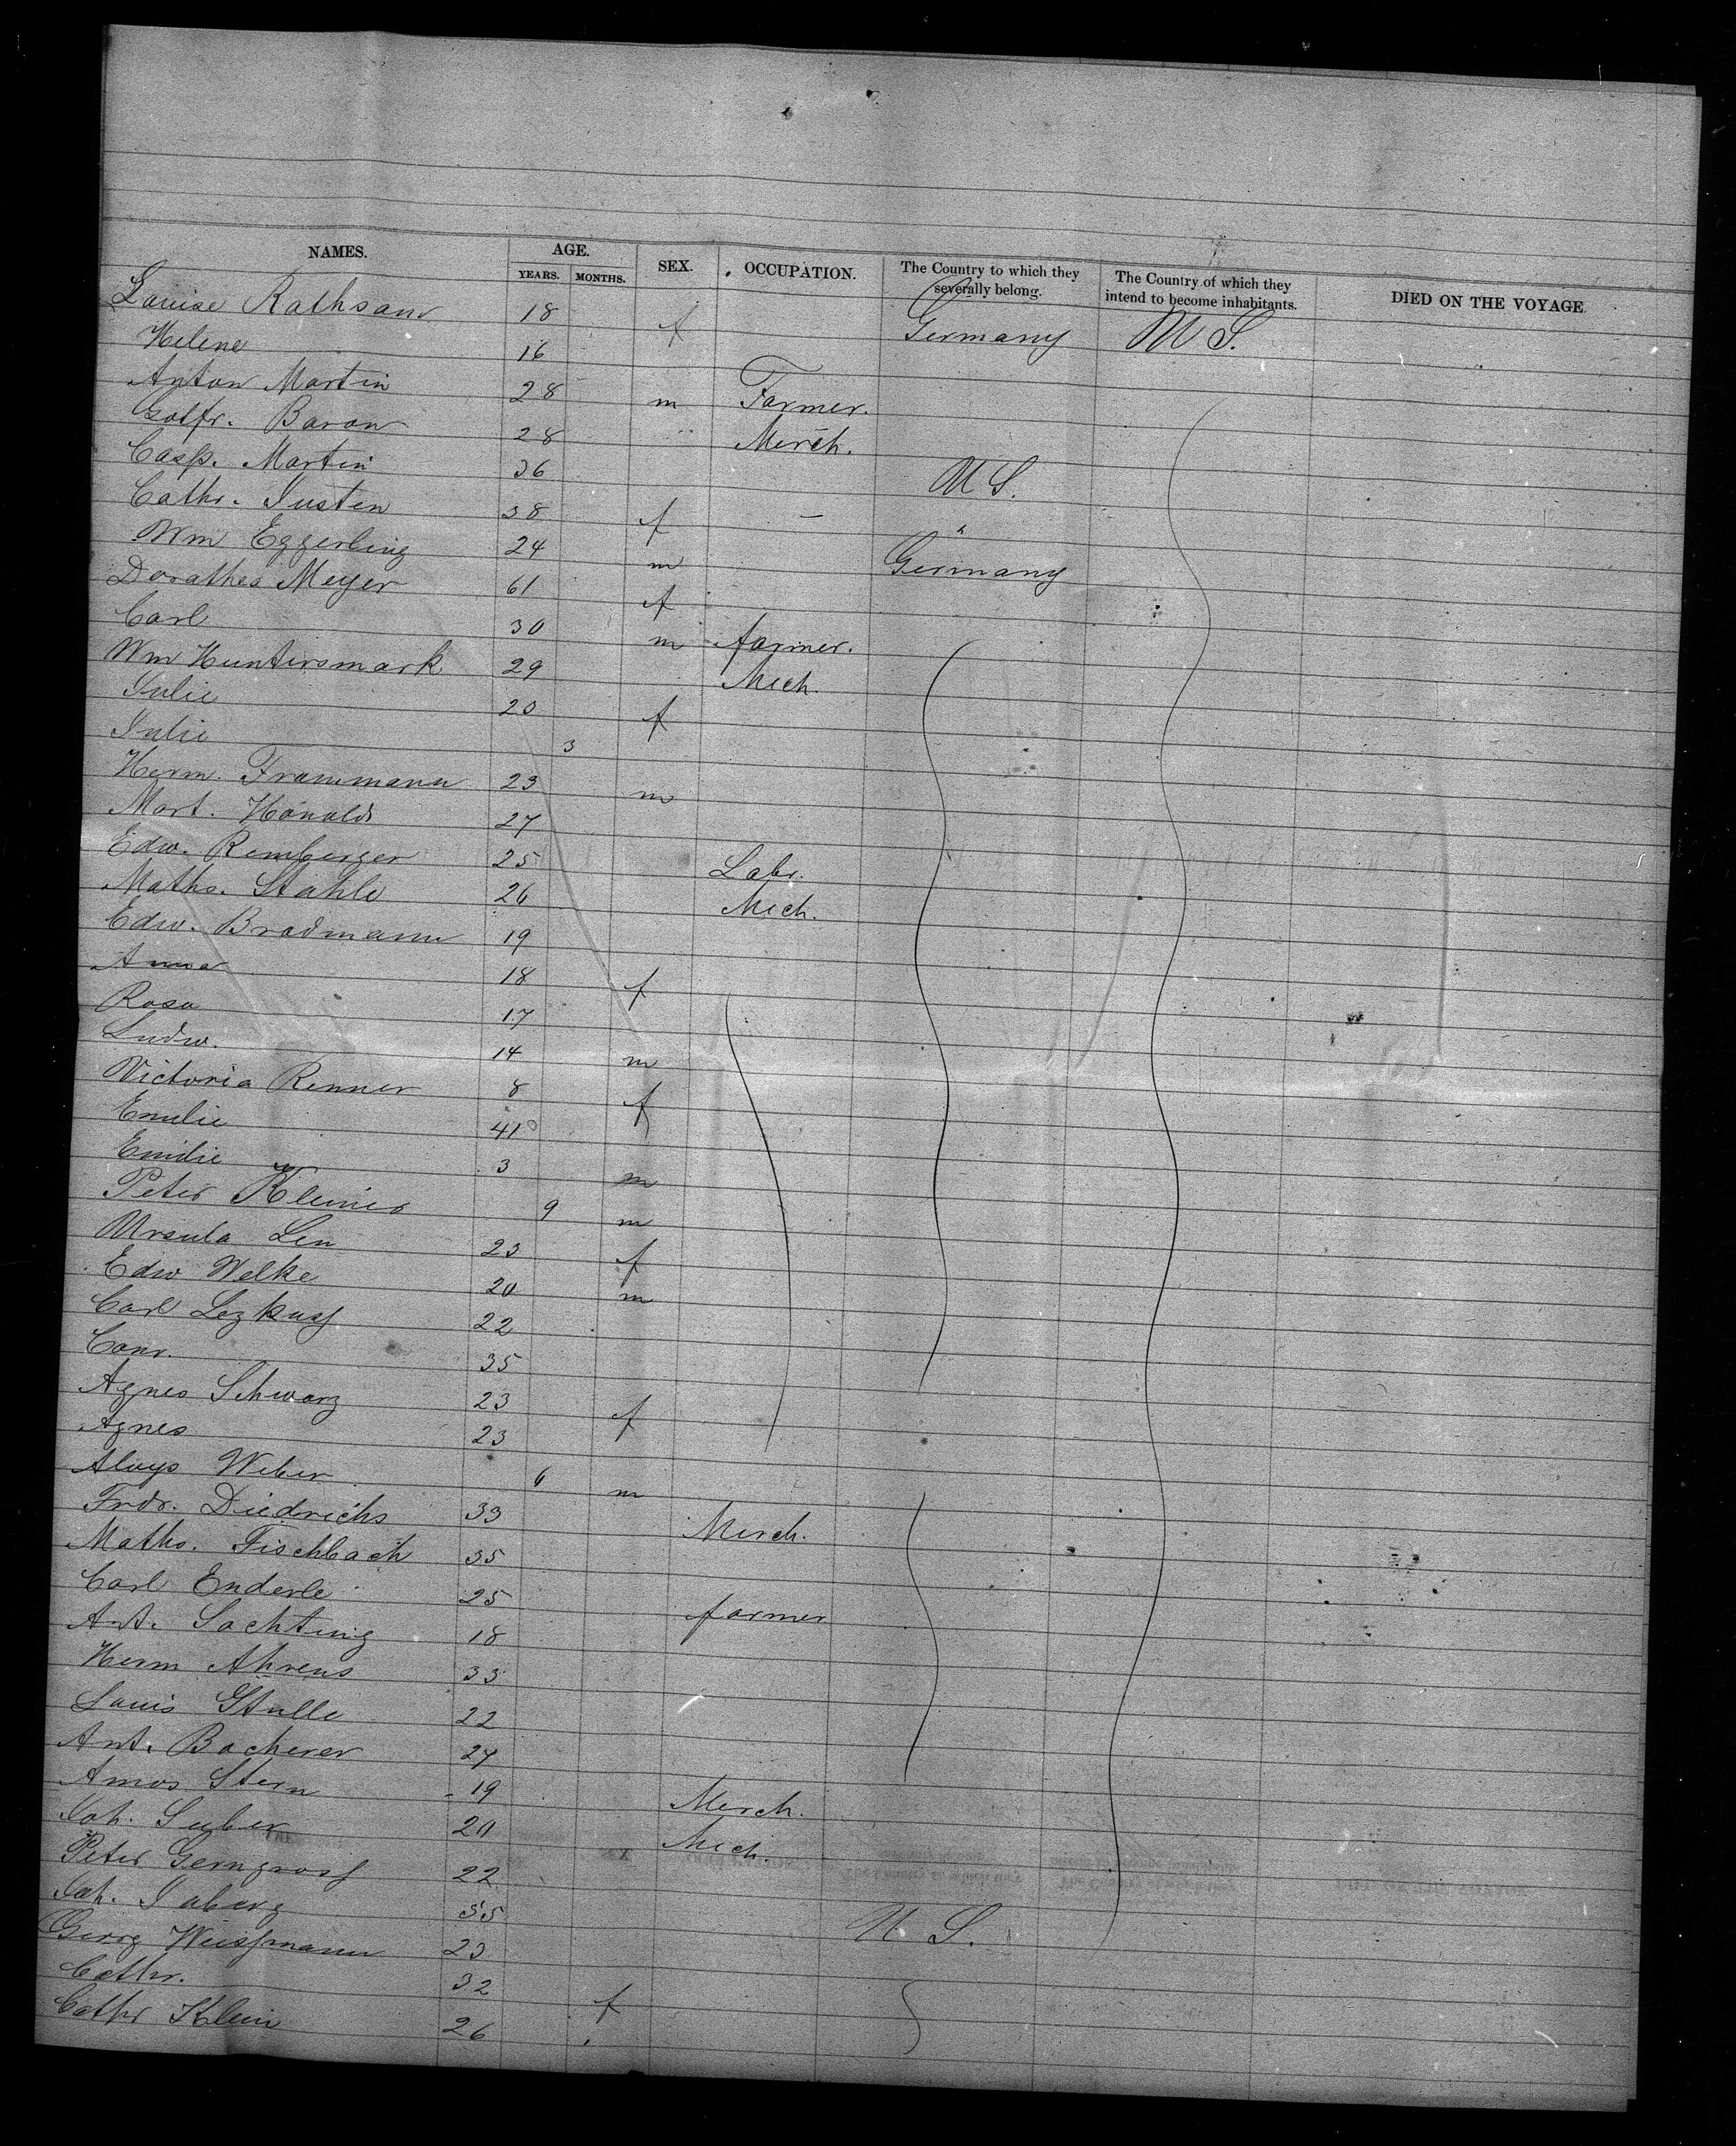 NAMES. AGE. SEX. OCCUPATION. The Country to which they severally belong. The Country of which they intend to become inhabitants. DIED ON THE VOYAGE
YEARS. MONTHS.
Louise Rathsam 18 f Germany U S.
Helene 16
Anton Martin 28 m Farmer.
Gotfr. Baron 28 Merch.
Casp. Martin 36 U S.
Cathr. Justen 38 f — "
Wm Eggerling 24 m Germany
Dorathea Meyer 61 f
Carl 30 m farmer.
Wm Huntersmark 29 Mech.
Julie 20 f
Julie 3
Herm. Frommann 23 m
Mart. Honald 27
Edw. Remberger 25 Labr.
Maths. Stahle 26 Mech.
Edw. Brodmann 19
Anna 18 f
Rosa 17
Ludw. 14 m
Victoria Renner 8 f
Emilie 41
Emilie 3 m
Peter Kleiner 9 m
Ursula Leu 23 f
Edw Welke 20 m
Carl 22
Conr. 35
Agnes Schwarz 23 f
Agnes 23
Aloys Weber 6 m
Frdr. Diedrichs 33 Merch.
Maths. Fischbach 35
Carl Enderle 25 farmer
Ant. Sachting 18
Herm Ahrens 33
Louis Stulle 22
Ant. Bacherer 27
Amos Stern 19 Merch.
Joh. Suber 20 Mech.
Peter Gerngross 22
Joh. Jaberg 35 U. S.
Georg Weissmann 23
Cathr. 32 f
Cathr Klein 26